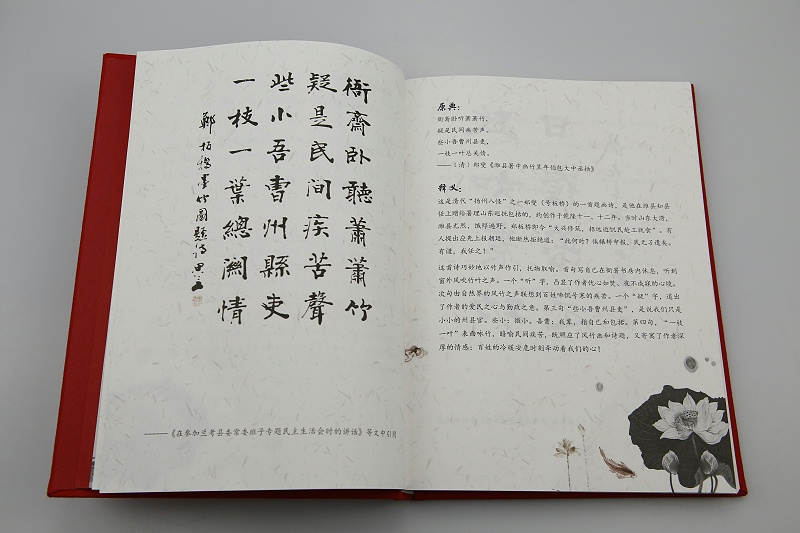 衙齋卧聽蕭蕭竹
疑是民间疾苦聲
些小吾曹州縣吏
一枝一葉總関情
鄭板橋墨竹圖題詩
———《在参加兰考县委常委班子专题民主生活会时的讲话》等文中引用
原典：
衙斋卧听萧萧竹，
疑是民间疾苦声。
些小吾曹州县吏，
一枝一叶总关情。
——（清）郑燮《潍县署中画竹呈年伯包大中丞括》
释义：
这是清代“扬州八怪”之一郑燮（号板桥）的一首题画诗，是他在潍县知县
任上赠给署理山东巡抚包括的，约创作于乾隆十一、十二年。当时山东大饥，
潍县尤烈，饿殍遍野。郑板桥即令“大兴修筑，招远近饥民赴工就食”。有
人提出应先上报朝廷，他断然拒绝道：“此何时？俟辗转申报，民无孑遗矣。
有谴，我任之！”
这首诗巧妙地以竹声作引，托物取喻。首句写自己在衙署书房内休息，听到
窗外风吹竹叶之声。一个“听”字，凸显了作者忧心如焚、夜不成寐的心境。
次句由自然界的风竹之声联想到百姓啼饥号寒的疾苦。一个“疑”字，道出
了作者的爱民之心与勤政之意。第三句“些小吾曹州县吏”，是说我们只是
小小的州县官。些小：微小。吾曹：我辈，指自己和包括。第四句，“一枝
一叶”表面咏竹，暗喻民间疾苦，既照应了风竹画和诗题，又寄寓了作者深
厚的情感：百姓的冷暖安危时刻牵动着我们的心！